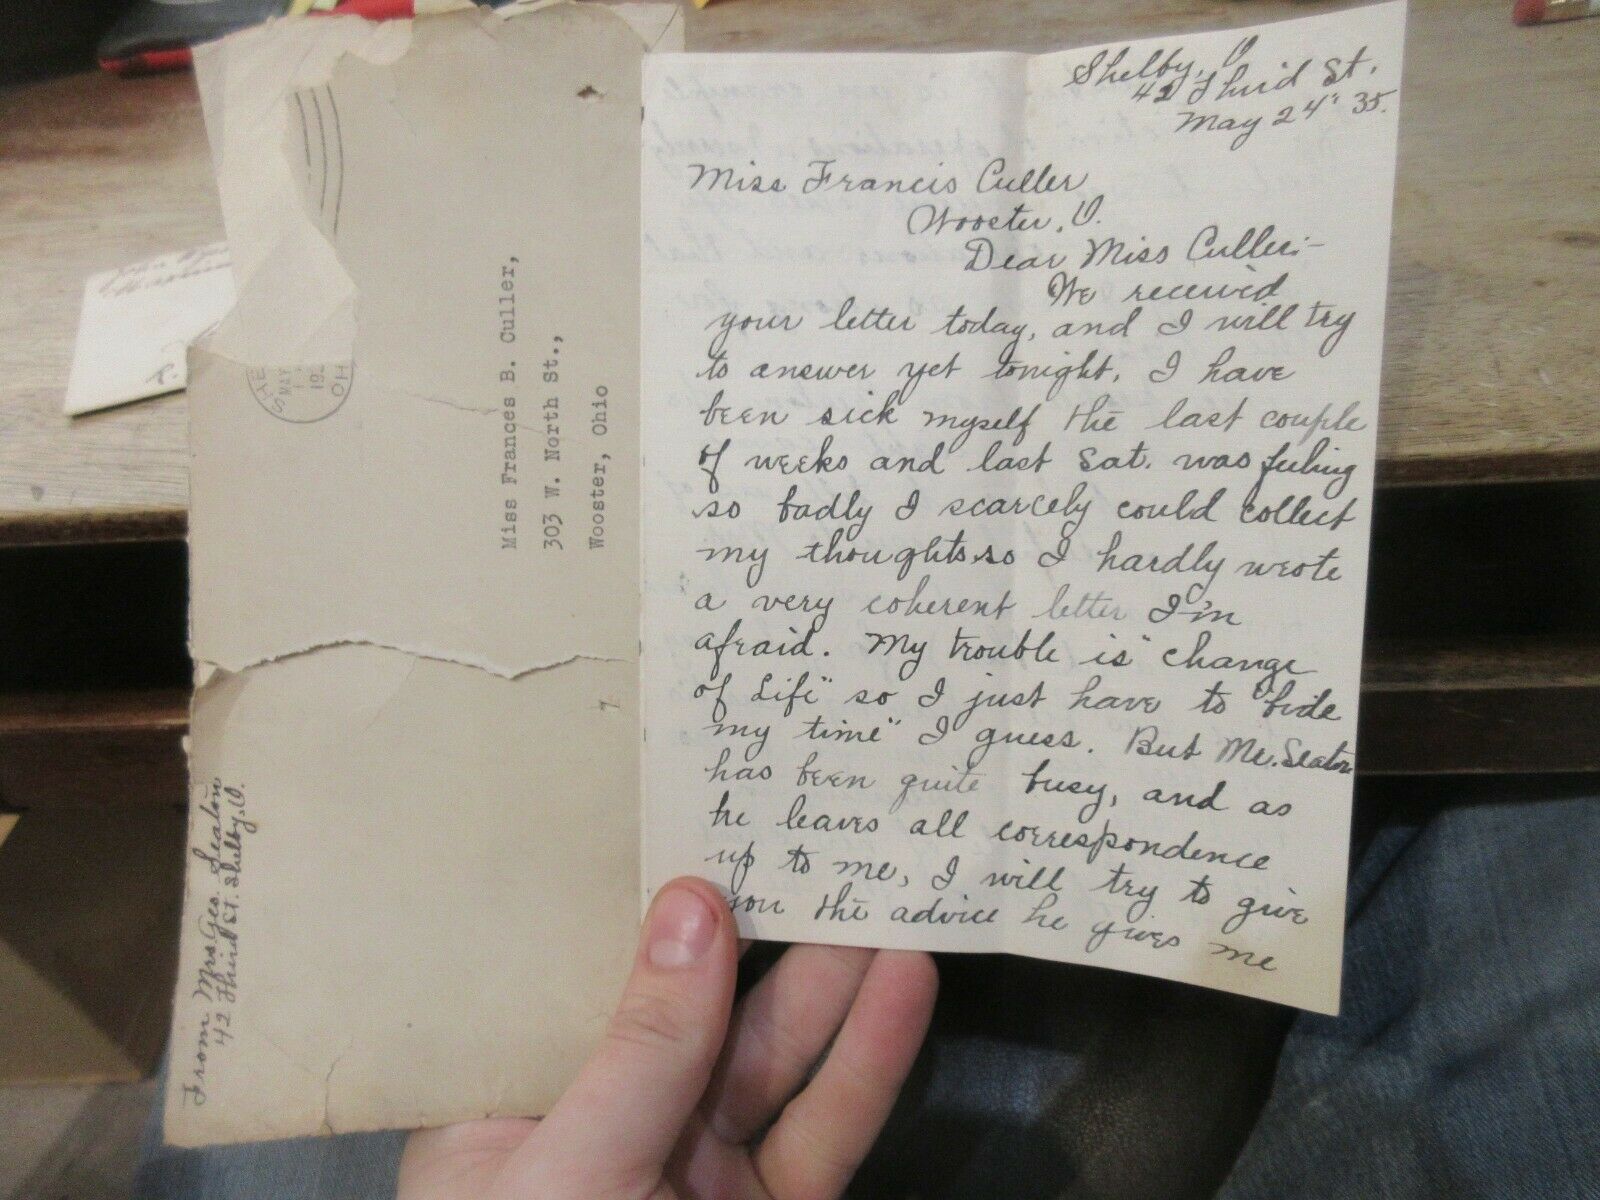 Miss Frances B. Culler,
303 W. North St.,
Wooster, Ohio
From Mrs Geo. Seaton
42 Third St. Shelby, O.
SHE
MAY
OH
Shelby, O
42 Third St.
May 24" 35.
Miss Francis Culler
Wooster, O.
Dear Miss Culler:-
We received
your letter today, and I will try
to answer yet tonight. I have
been sick myself the last couple
of weeks and last Sat. was feeling
so badly I scarcely could collect
my thoughts so I hardly wrote
a very coherent letter I'm
afraid. My trouble is "change
of Life" so I just have to "bide
my time" I guess. But Mr. Seaton
has been quite busy, and as
he leaves all correspondence
up to me, I will try to give
you the advice he gives me